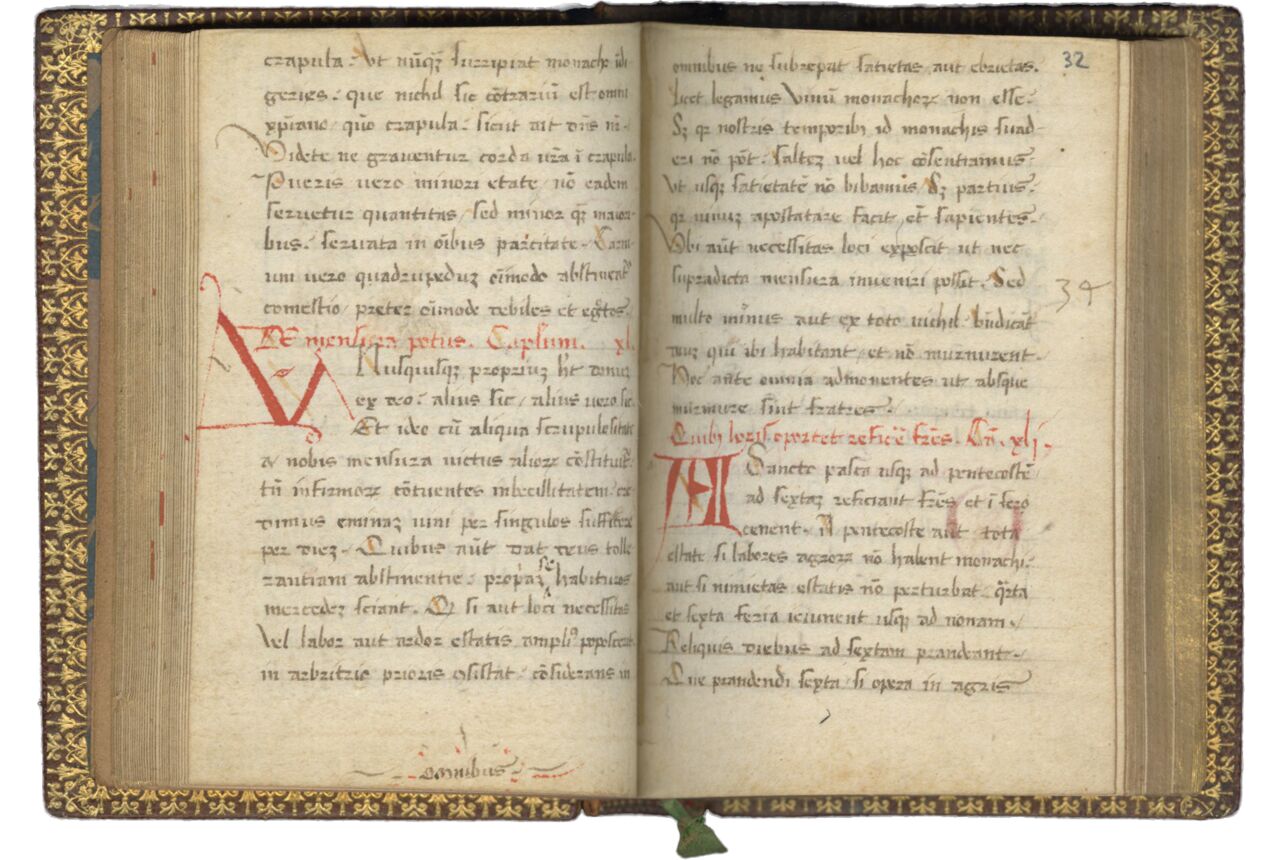 crapula. Ut nūq̄ӡ surripiat monacho īdi
geries. que nichil sic cōtrariū est omni
xp̄iano. quō crapula. sicut ait dn̄s nr̄.
Videte ne graventur corda vr̄a ī crapula.
Pueris vero minori etate. nō eadem
servetur quantitas. sed minor qӡ maiori
bus. servata in oībus parcitate. Carni
um vero quadrupeduӡ oīmodo abstineat᷑
comestio. preter oīmode debiles et egrōtos.
DE mensura potus. Capl̄um. xl.
Nusquisqӡ propriuӡ hꝫt donuӡ
ex deo. alius sic. alius vero sic.
Et ideo cū aliqua scrupulositate
a nobis mensura victus alioꝝ cōstituit᷑.
tn̄ infirmoꝝ cōtuentes inbecillitatem. cre
dimus eminaӡ vini per singulos sufficere
per dieӡ. Quibus aūt dat deus tolle
rantiam abstinentie. propaӡ se habituros
mercedeӡ sciant. Q si aut loci necessitas
vel labor aut ardor estatis ampliꝰ poposcerit
in arbritrio prioris ꝯsistat. cōsiderans in
omnibus
32
omnibus ne subrepat satietas aut ebrietas.
licet legamus vinū monachoꝝ non esse.
Sꝫ qꝛ nostris temporibꝫ id monachis suad
eri nō pōt. salteӡ vel hoc cōsentiamus
ut usqӡ satietatē nō bibamus. Sꝫ partius.
qꝛ vinuӡ apostatare facit. et̄ sapientes.
Ubi aūt necessitas loci exposcit ut nec
supradicta mensura inveniri possit. Sed
34
multo minus aut ex toto nichil. bn̄dicāt
deuӡ qui ibi habitant. et nō murmurent.
Hoc ante omnia admonentes ut absque
murmure sint fratres.
Quibꝫ horis oportet reficē fr̄es. Ca. xlj.
A Sancto pasca usqӡ ad pentecostē
ad sextaӡ reficiant fr̄es et ī sero
cenent. A pentecoste aūt tota
estate si labores agroꝝ nō habent monachi.
aut si nimietas estatis nō perturbat. q̄rta
et sexta feria ieiunent usqӡ ad nonam.
Reliquis diebus ad sextam prandeant.
Que prandendi sexta. si opera in agris